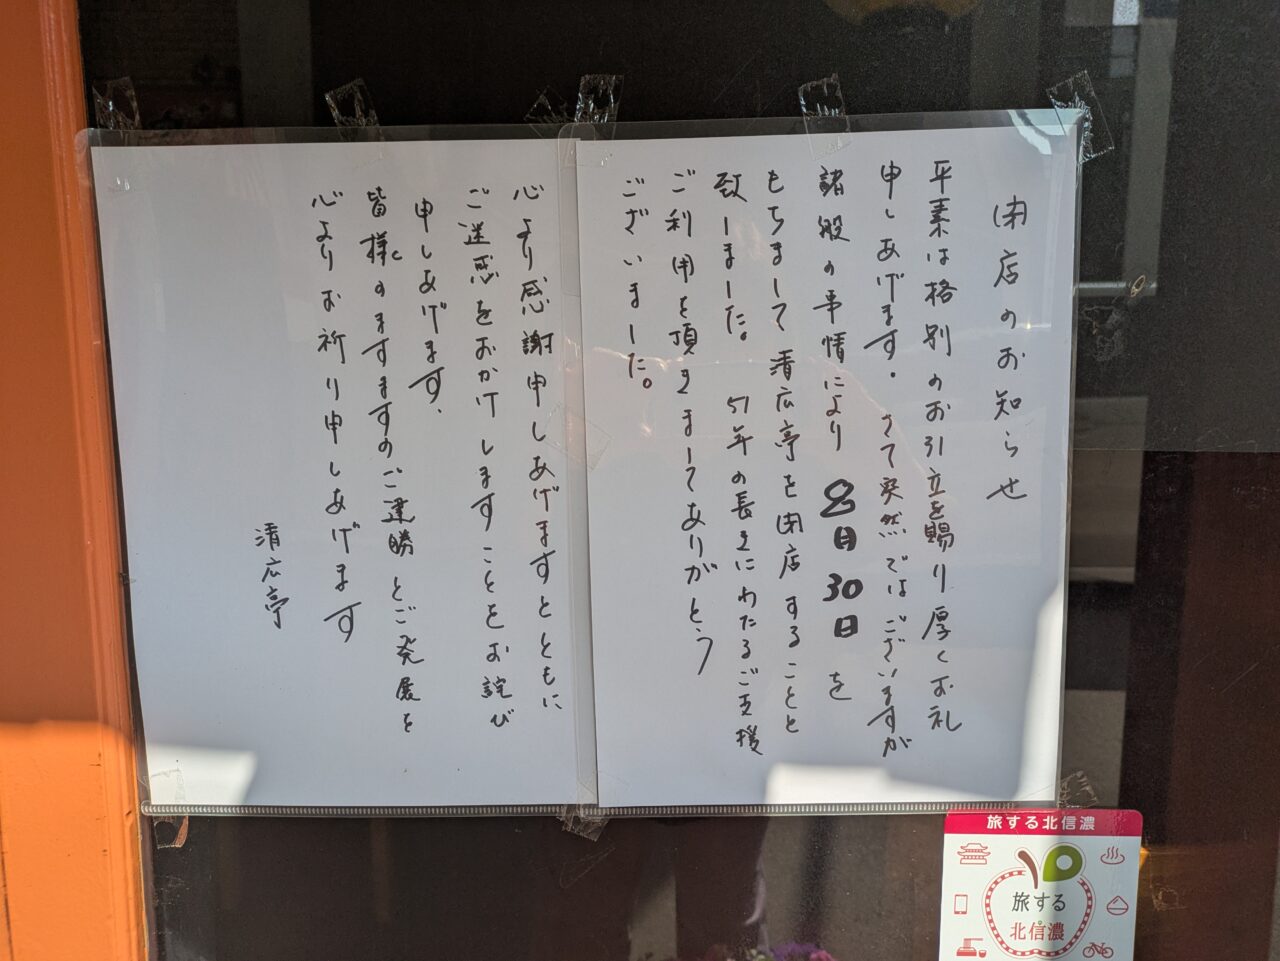 閉店のお知らせ
平素は格別のお引立を賜り厚くお礼
申しあげます。さて突然ではございますが
諸般の事情により 8月30日を
もちまして 清広亭を閉店することと
致しました。 51年の長きにわたるご支援
ご利用を頂きましてありがとう
ございました。
心より感謝申しあげますとともに
ご迷惑をおかけしますことをお詫び
申しあげます、
皆様のますますのご健勝とご発展を
心よりお祈り申しあげます
清広亭
旅する北信濃
旅する
北信濃